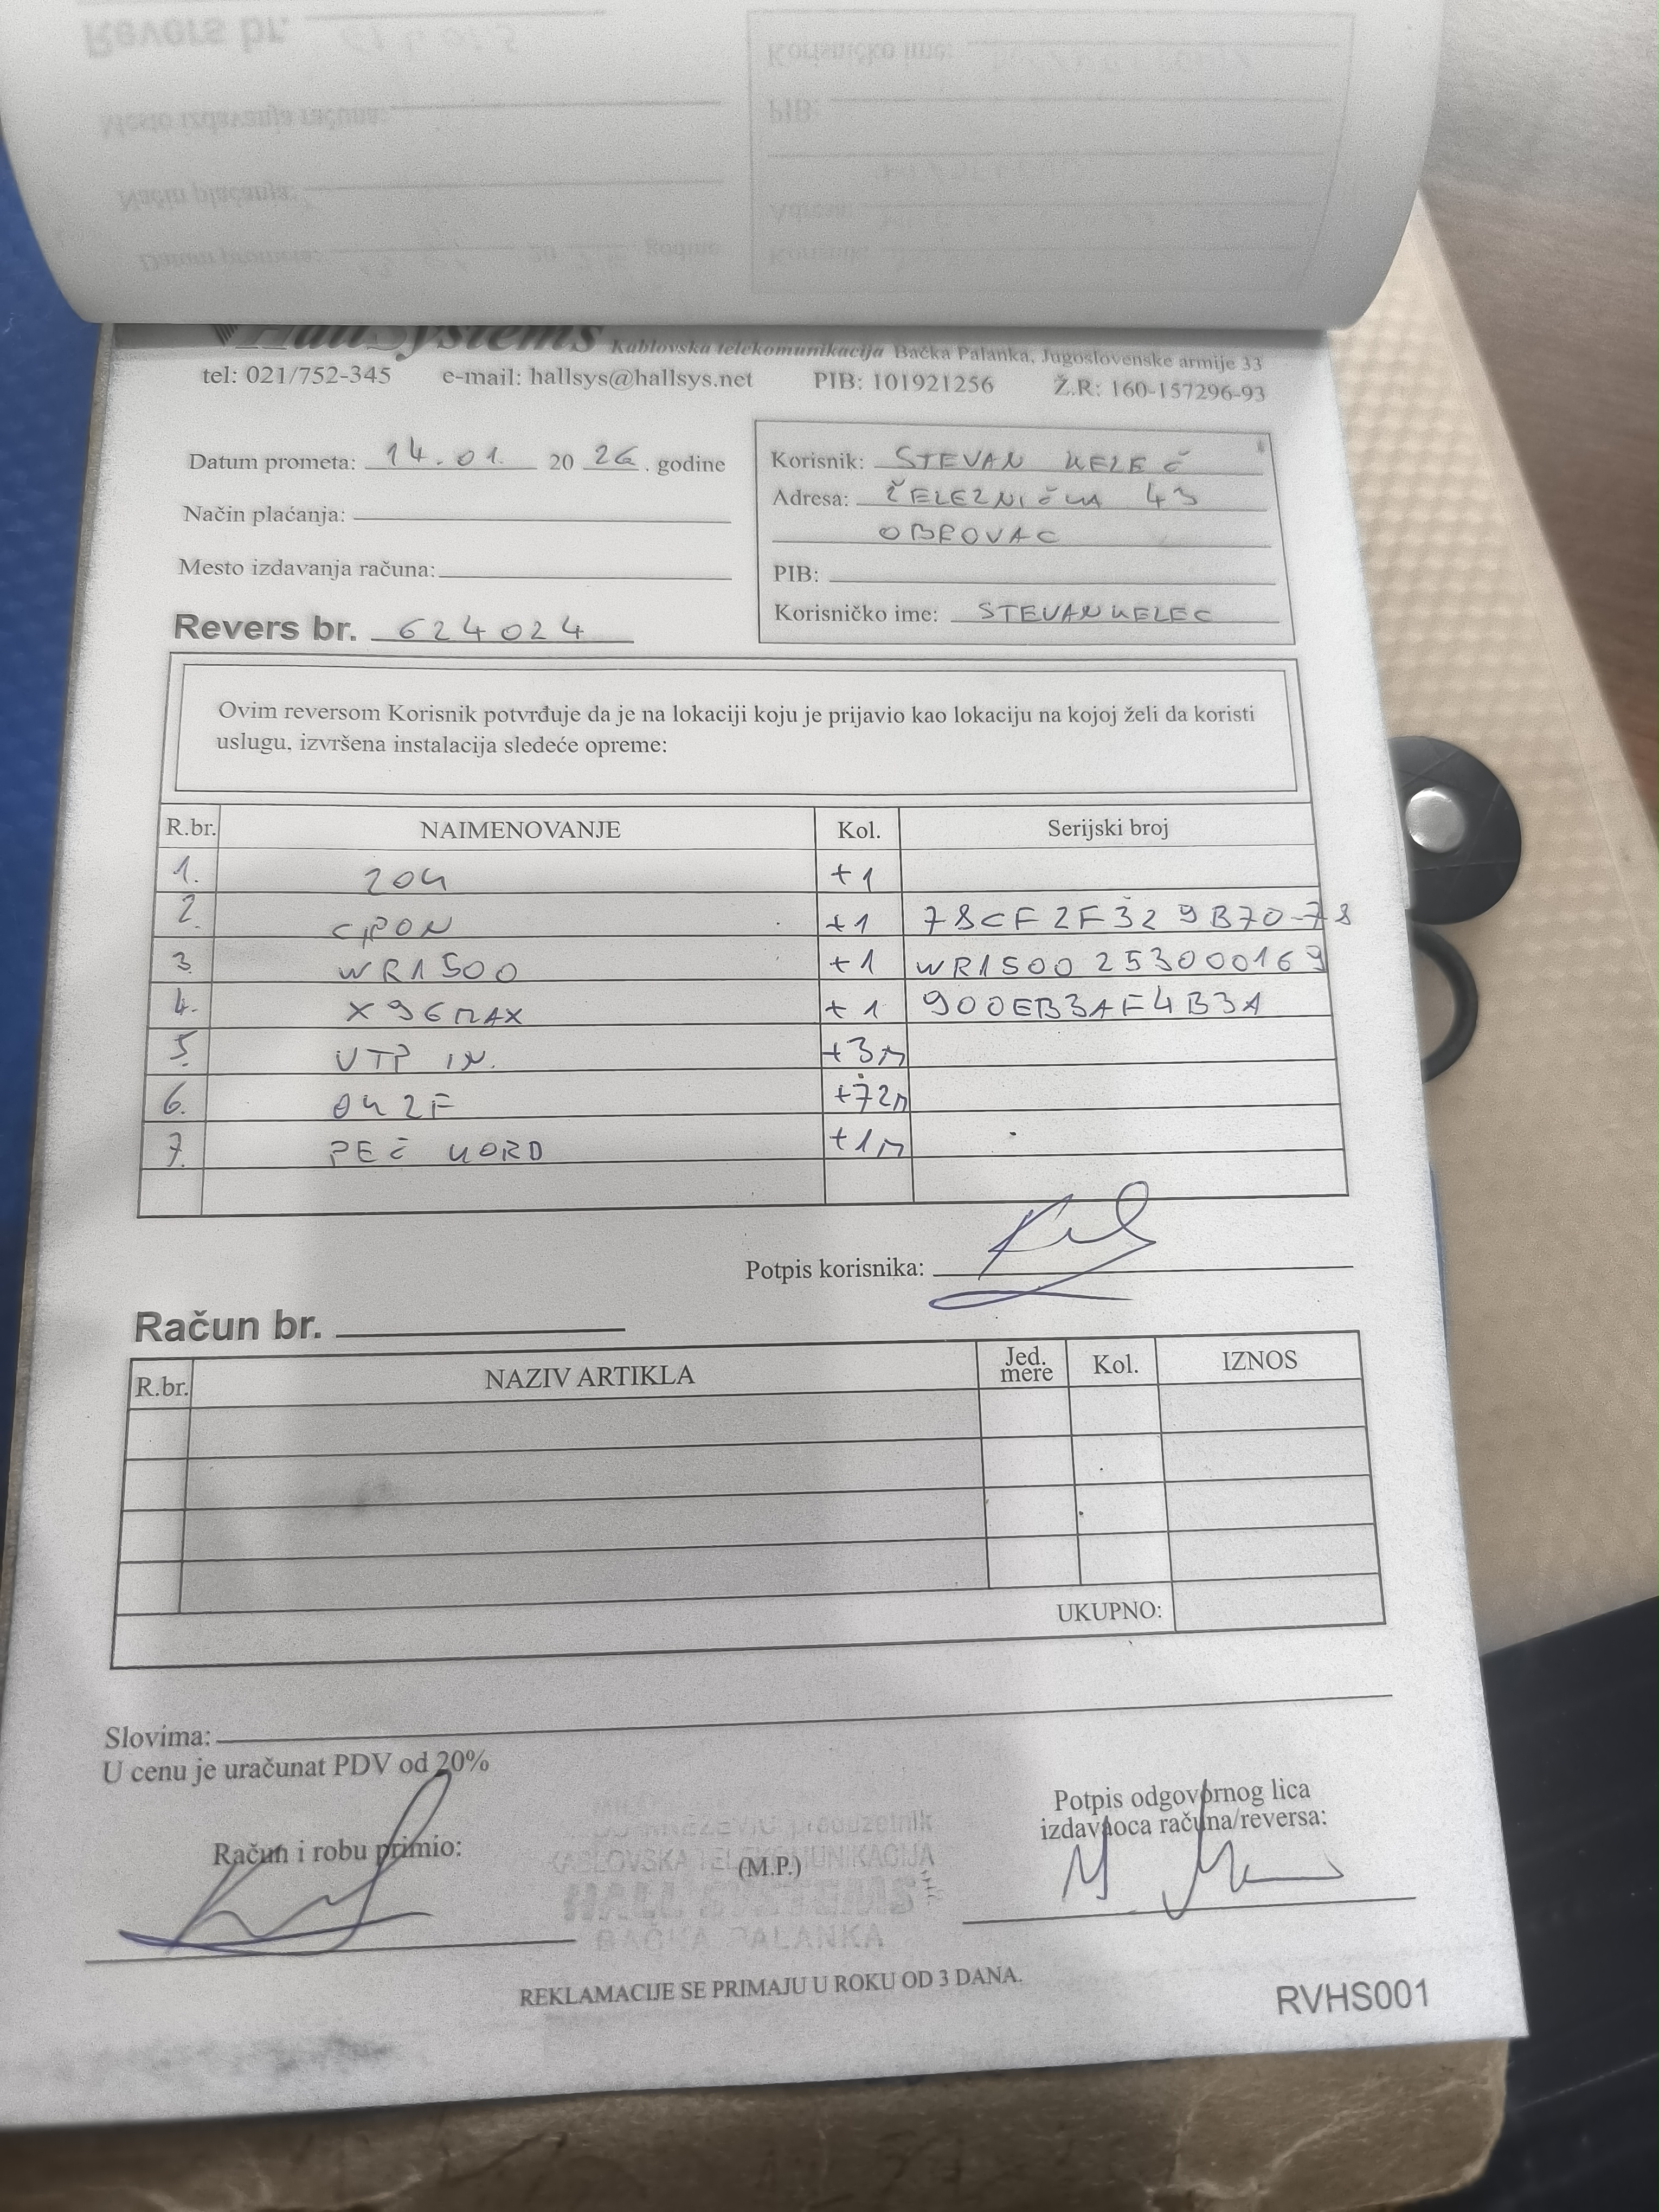 HallSystems Kablovska telekomunikacija Bačka Palanka, Jugoslovenske armije 33
tel: 021/752-345 e-mail: hallsys@hallsys.net PIB: 101921256 Ž.R: 160-157296-93
Datum prometa: 14.01. 20 26. godine
Način plaćanja:
Mesto izdavanja računa:
Revers br. 624024
Korisnik: STEVAN KELEČ
Adresa: ŽELEZNIČKA 43
OBROVAC
PIB:
Korisničko ime: STEVANKELEC
Ovim reversom Korisnik potvrđuje da je na lokaciji koju je prijavio kao lokaciju na kojoj želi da koristi
uslugu, izvršena instalacija sledeće opreme:
R.br. NAIMENOVANJE Kol. Serijski broj
1. ZOK +1
2. GPON +1 78CF2F329B70-78
3. WR1500 +1 WR1500253000169
4. X96MAX +1 900EB3AF4B3A
5. UTP IN. +3m
6. OK 2F +72m
7. PEČ KORD +1m
Potpis korisnika:
Račun br.
R.br. NAZIV ARTIKLA Jed. mere Kol. IZNOS
UKUPNO:
Slovima:
U cenu je uračunat PDV od 20%
Račun i robu primio:
preduzetnik
KABLOVSKA TELEKOMUNIKACIJA
(M.P.)
HALL SYSTEMS
BAČKA PALANKA
Potpis odgovornog lica
izdavaoca računa/reversa:
REKLAMACIJE SE PRIMAJU U ROKU OD 3 DANA.
RVHS001